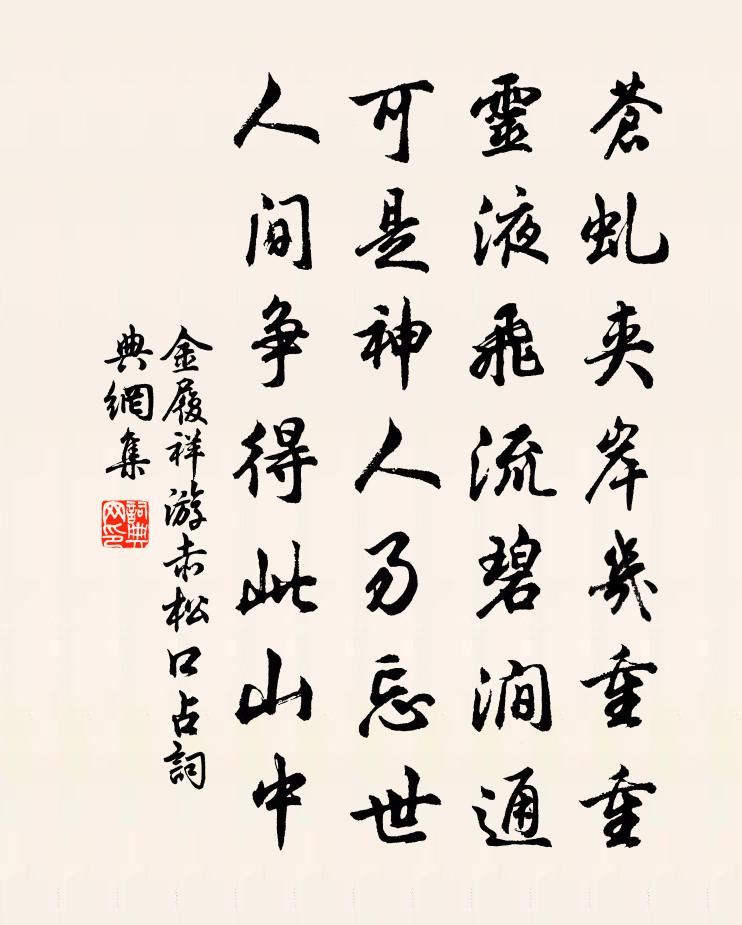 蒼虬夹岸幾重重
靈液飛流碧澗通
可是神人乃忘世
人间争得此山中
金履祥游赤松口占詞
典網集
詞典网印